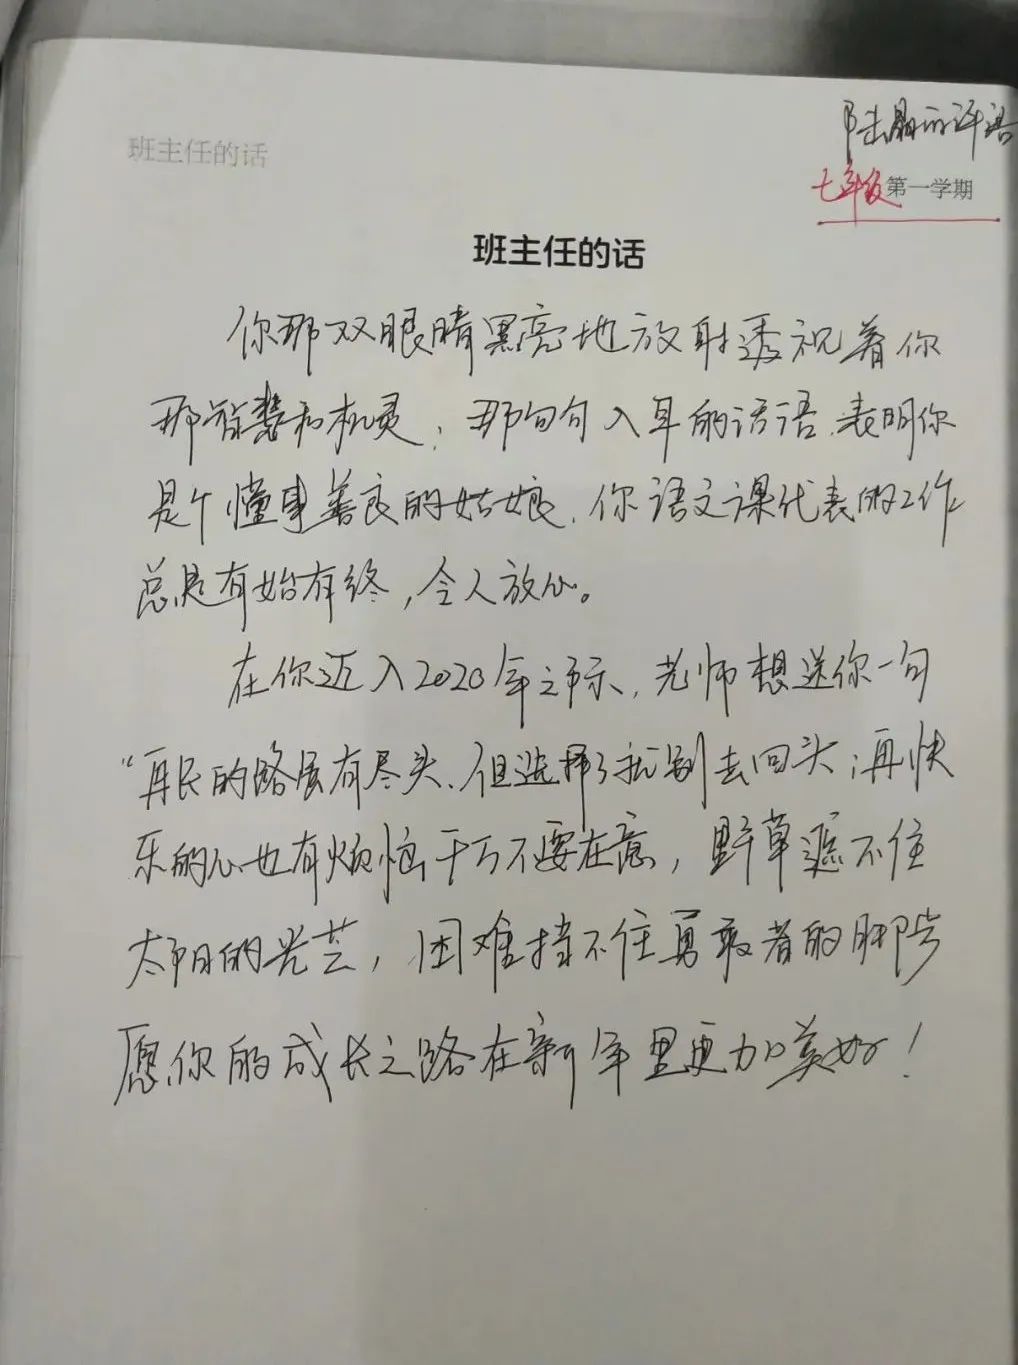 的评语
班主任的话
七年级第一学期
班主任的话
你那双眼睛黑亮地放射透视着你
那智慧和机灵，那句句入耳的话语，表明你
是个懂事善良的姑娘，你语文课代表的工作
总是有始有终，令人放心。
在你迈入2020年之际，老师想送你一句
“再长的路会有尽头，但选择了就别去回头；再快
乐的心也有烦恼千万不要在意，野草遮不住
太阳的光芒，困难挡不住勇敢者的脚步
愿你的成长之路在新年里更加美好！